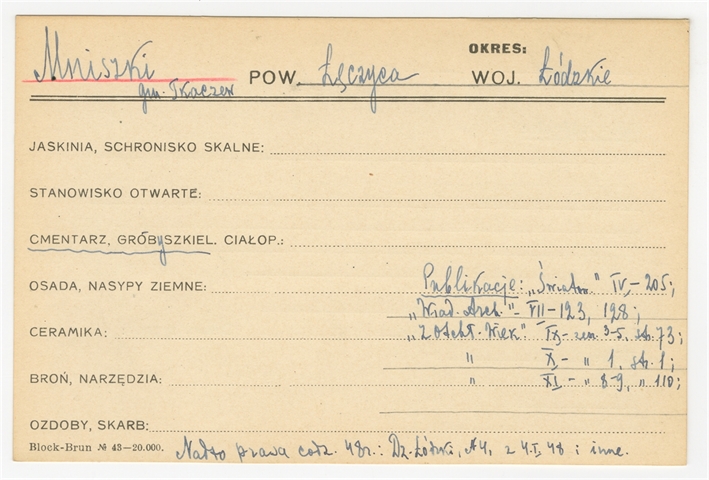 OKRES:
Mniszki POW. Łęczyca WOJ. Łódzkie
gm. Tkaczew
JASKINIA, SCHRONISKO SKALNE:
STANOWISKO OTWARTE:
CMENTARZ, GRÓBySZKIEL. CIAŁOP.:
OSADA, NASYPY ZIEMNE: Publikacje: „Światow." IV,-205;
„Wiad. Arch."- VII-123, 128;
CERAMIKA: „Z otchł. Wiek." IX,- zesz. 3-5, str. 73;
" X- " 1, str. 1;
BROŃ, NARZĘDZIA: " XI- " 8-9, " 110;
OZDOBY, SKARB:
Block-Brun № 43-20.000. Nadto prasa codz. 48r.: Dz. Łódzki, № 4, z 4.I.48 i inne.